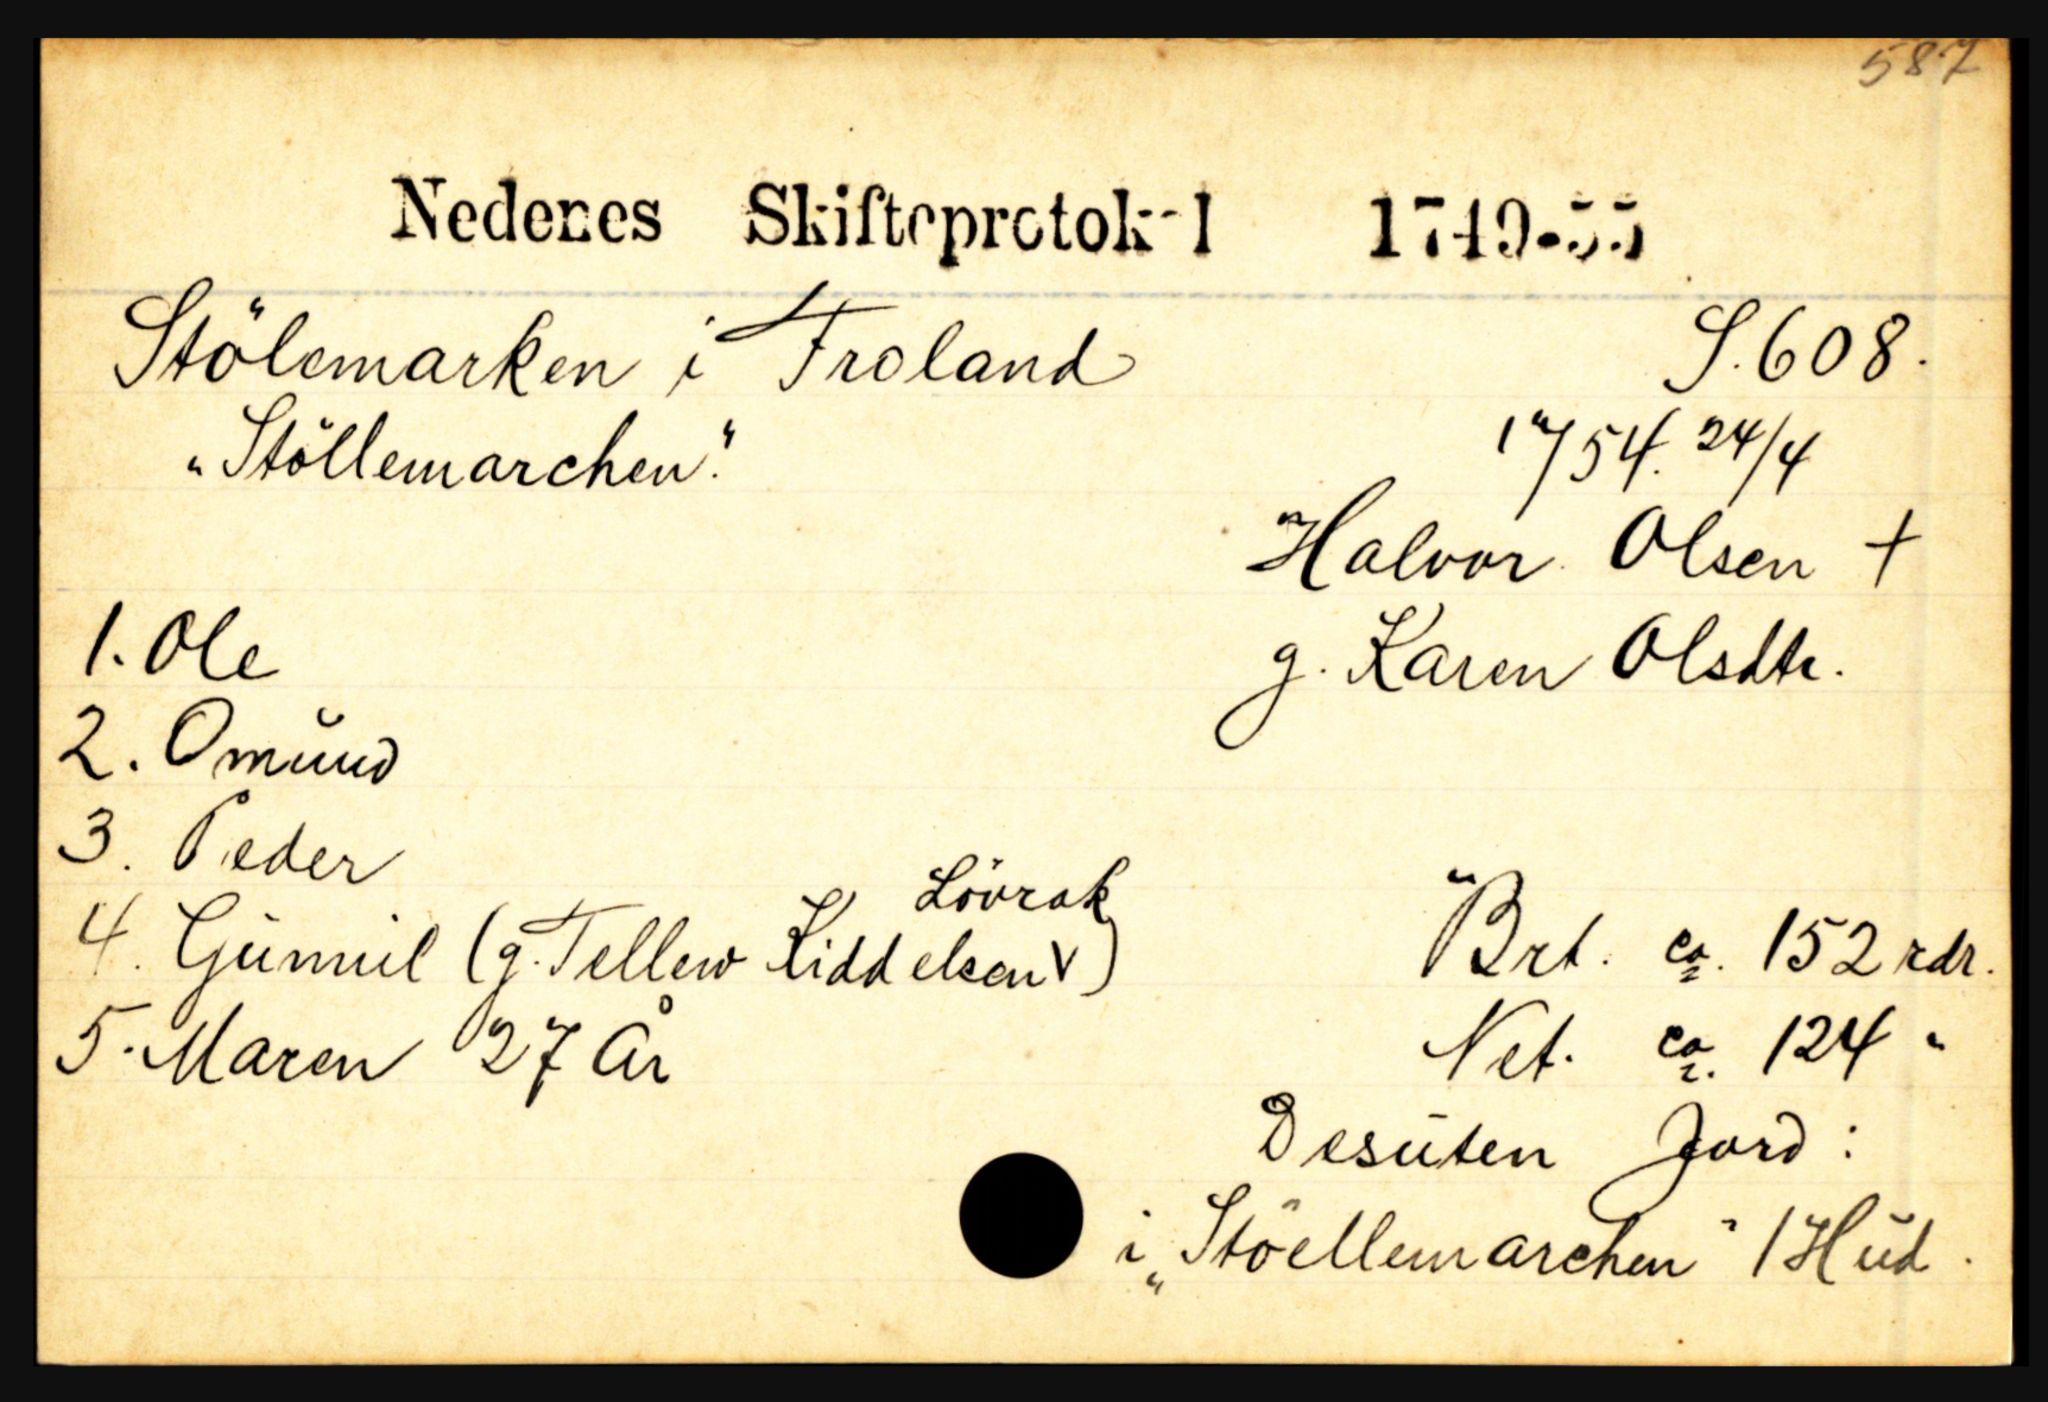 587
Nedenes Skifteprotokol 1749-55
Stölemarken i Froland S. 608.
"Stöllemarchen". 1754. 24/4
Halvor Olsen +
1. Ole g. Karen Olsdtr.
2. Omund
3. Peder
Lövrak
4. Gunnil (g. Tellew Kiddelsen v) Brt. ca. 152 rdr.
5. Maren 27 År Net. ca. 124 "
Desuten Jord:
i "Stöellemarchen" 1 Hud.